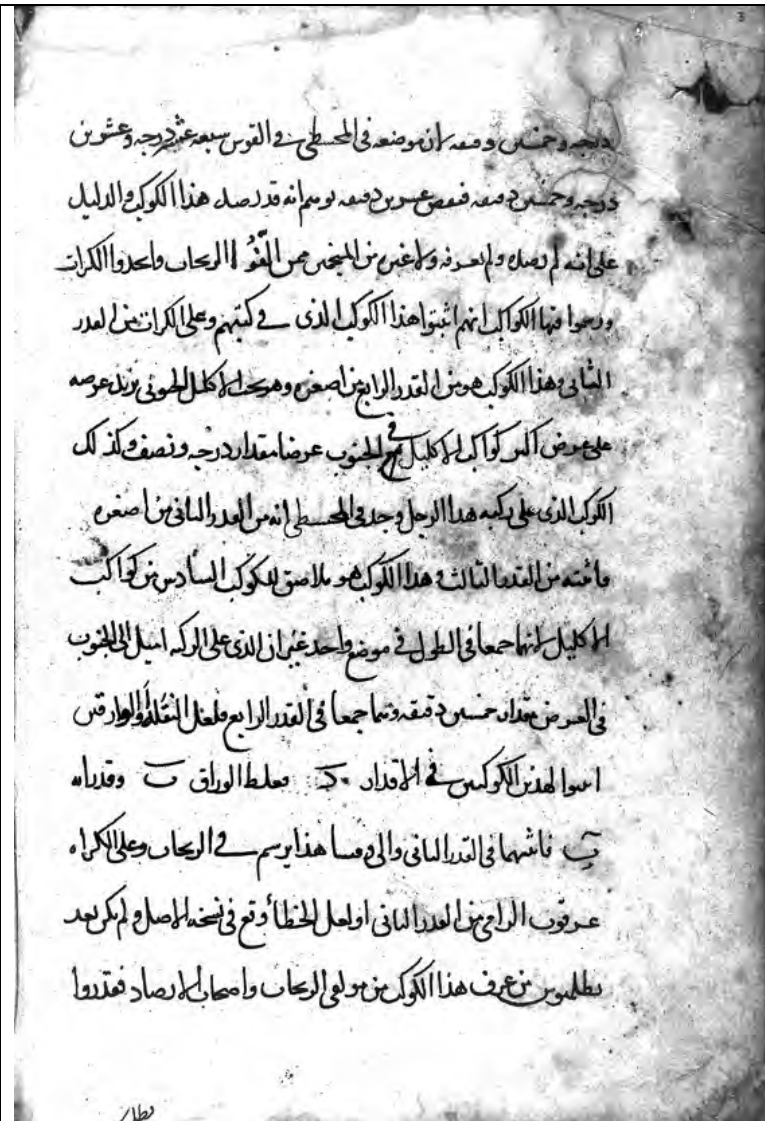 درجه وخمسين دقيقه لان موضعه في المجسطى في القوس سبعه عشر درجه وعشرين
درجه وخمسين دقيقه فنقص عشرين دقيقه يوهم انه قد رصد هذا الكوكب والدليل
على انه لم يرصده ولم يعرفه ولا غيره من المنجمين ممن الّفوُا الزيجات واتخذوا الكرات
ورسموا فيها الكواكب انهم اثبتوا هذا الكوكب الذى في كتبهم وعلى الكرات من القدر
الثانى وهذا الكوكب هو من القدر الرابع من اصغره وهو تحت الاكليل الجنوبى يزيد عرضه
على عرض كواكب الاكليل في الجنوب عرضا مقدار درجه ونصف وكذلك
الكوكب الذى على ركبه هذا الرجل وجد في المجسطى انه من القدر الثانى من اصغره
فاثبته من القدر الثالث وهذا الكوكب هو ملاصق للكوكب السادس من كواكب
الاكليل لانهما جميعا في الطول في موضع واحد غير ان الذى على الركبه اميل الى الجنوب
في العرض مقدار خمسين دقيقه وهما جميعا في القدر الرابع فلعل النقله والوارقين
اثبتوا لهذين الكوكبين في الاقدار فغلط الوراق وقدراه
فاثبتهما في القدر الثانى والى وقتنا هذا يرسم في الزيجات وعلى الكراه
عرقوب الرامى من القدر الثانى او لعل الخطأ وقع في نسخه الاصل ولم يكن بعد
بطلميوس من عرف هذا الكوكب من مولفى الزيجات واصحاب الارصاد فقدروا